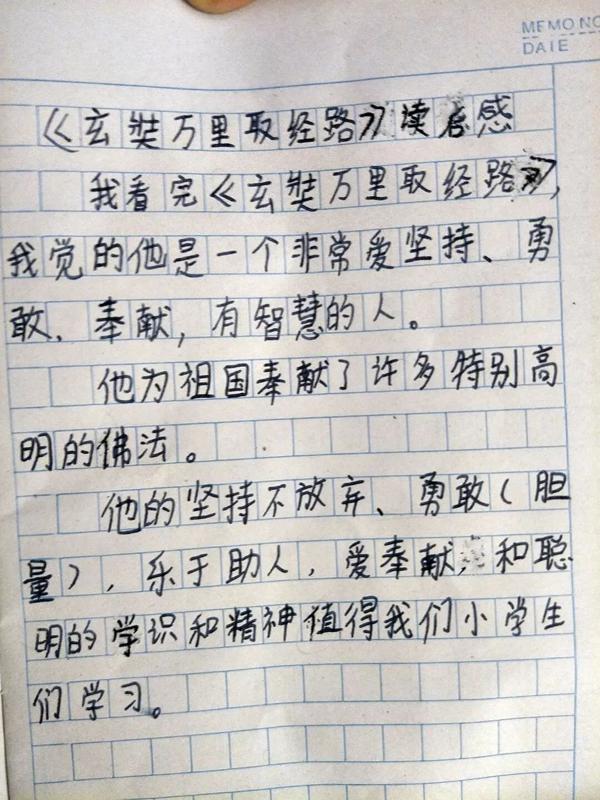 MEMO NO
DATE
《玄奘万里取经路》读后感
我看完《玄奘万里取经路》,
我觉的他是一个非常爱坚持、勇
敢、奉献,有智慧的人。
他为祖国奉献了许多特别高
明的佛法。
他的坚持不放弃、勇敢(胆
量),乐于助人,爱奉献,和聪
明的学识和精神值得我们小学生
们学习。